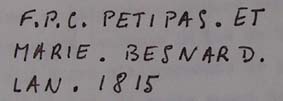 F.P.C. PETIPAS. ET
MARIE. BESNARD.
LAN. 1815